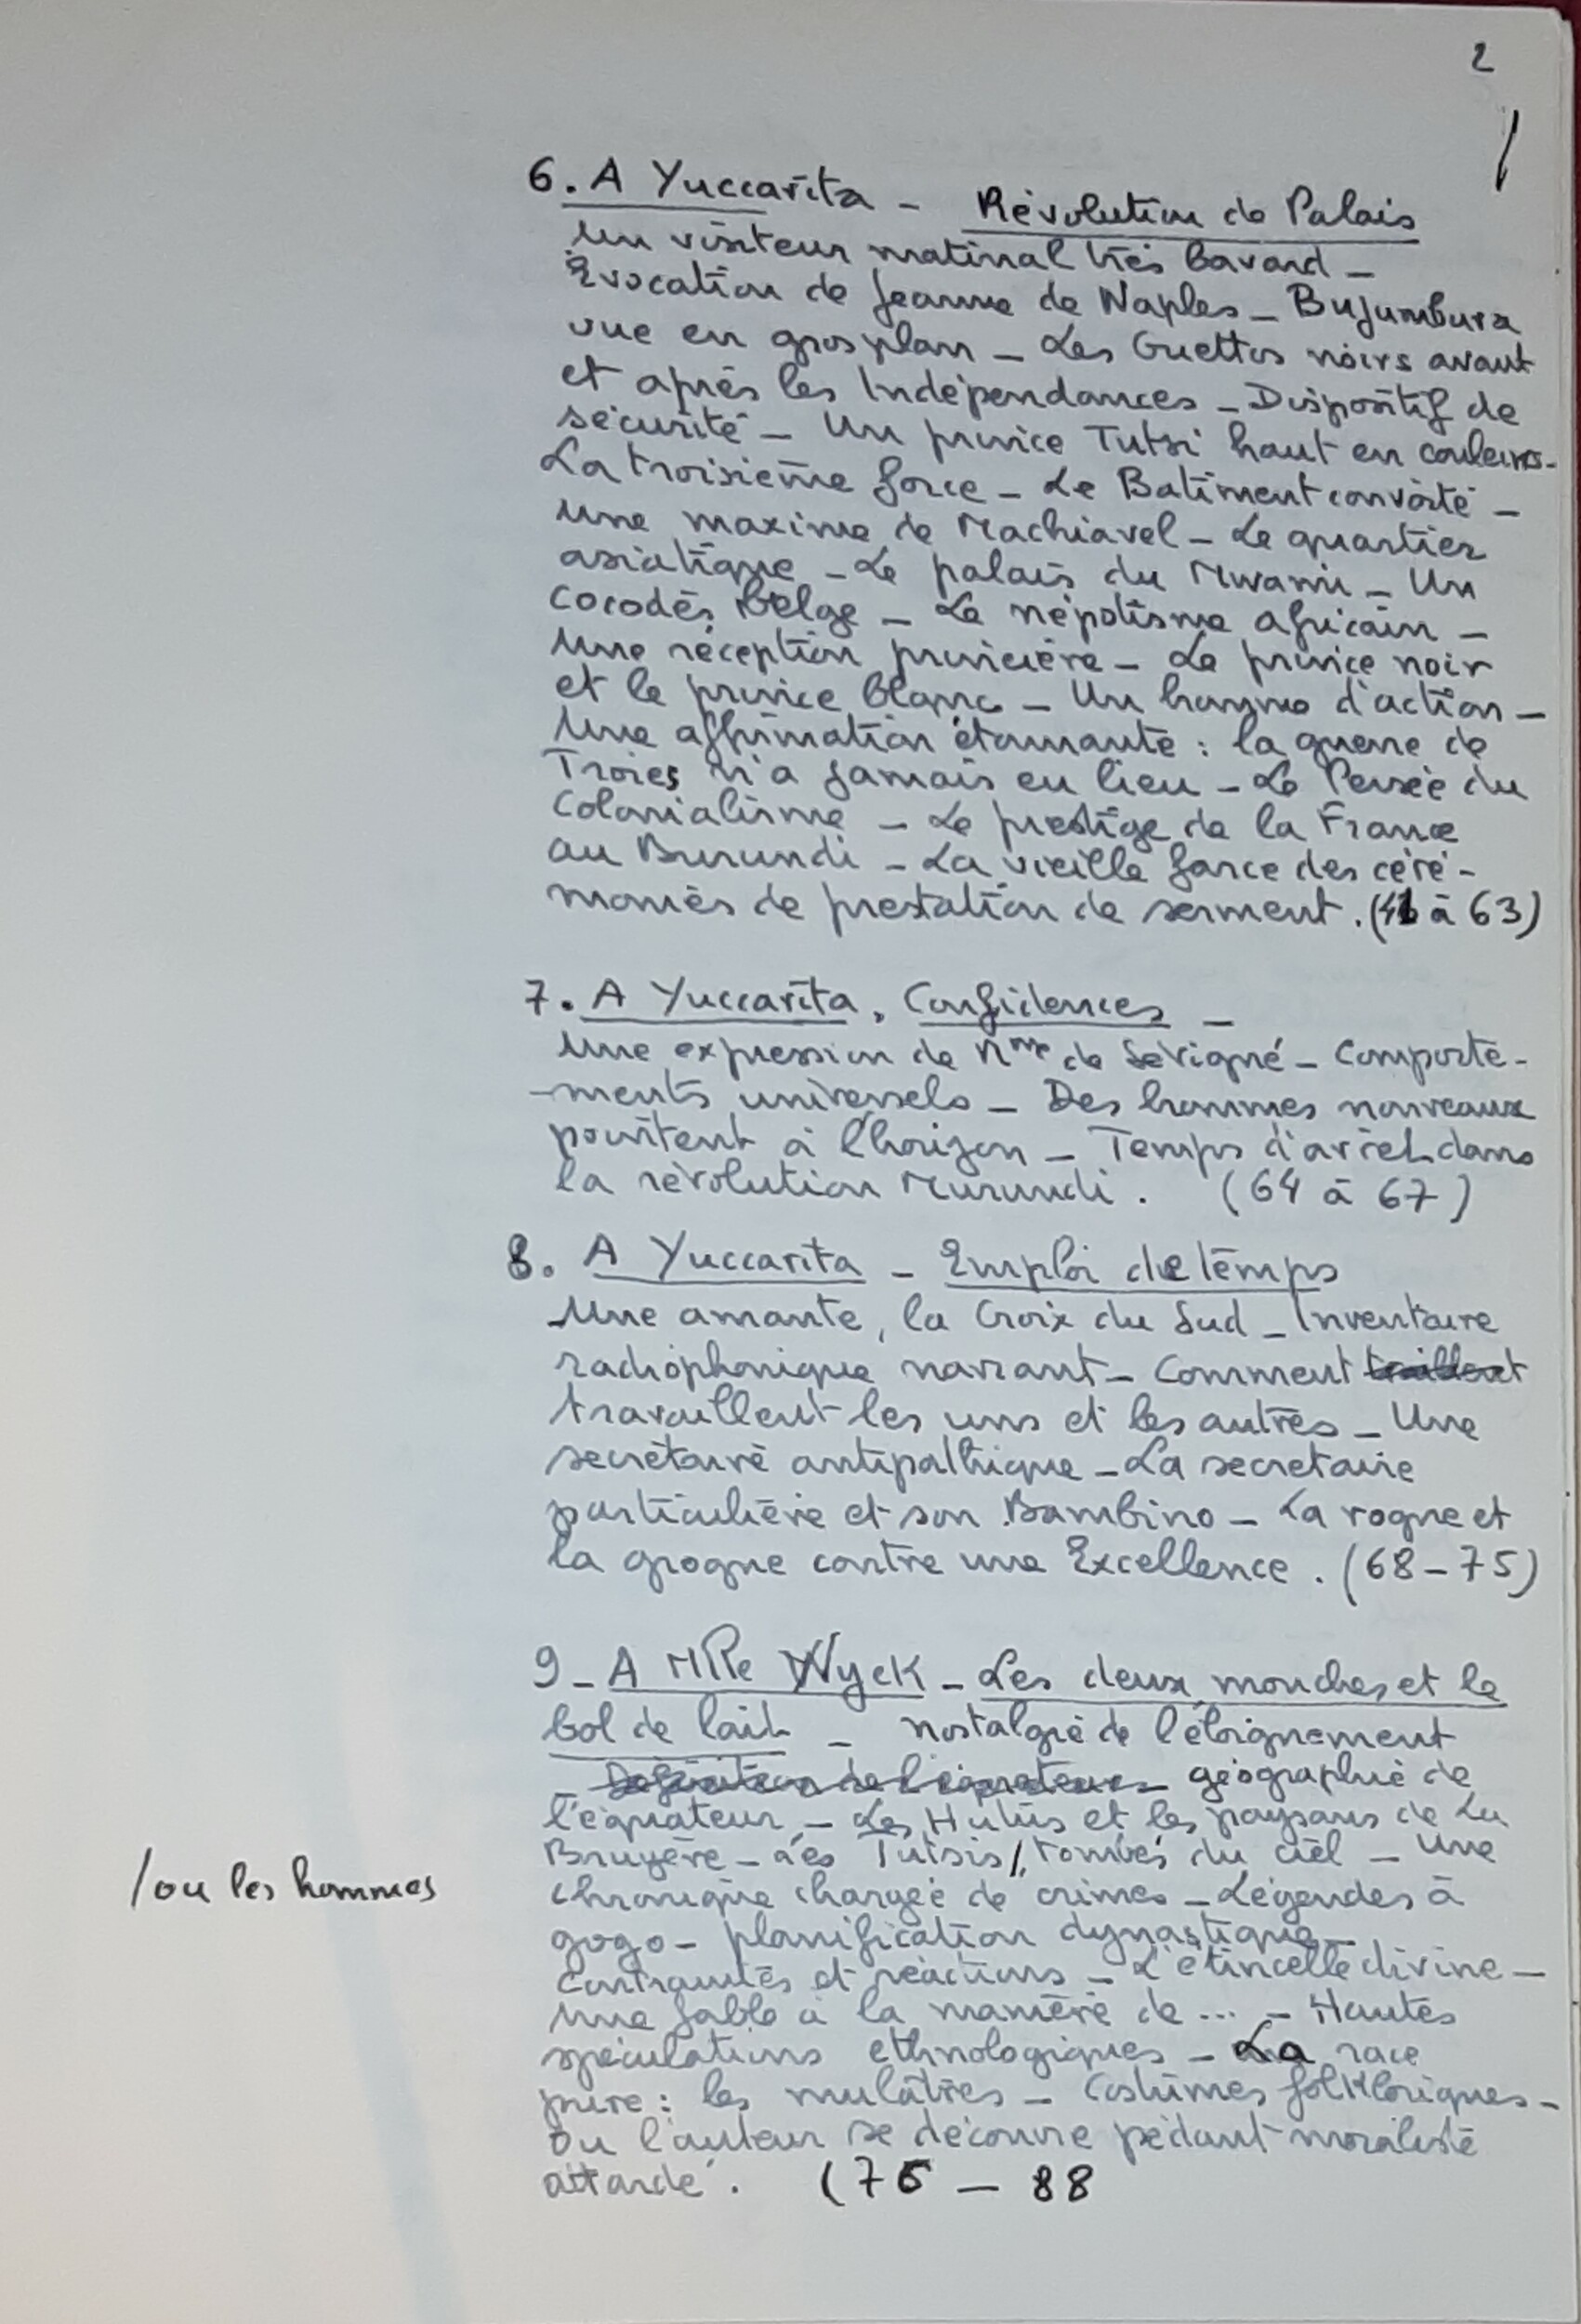 2
6. A Yuccarita - Révolution de Palais
Un visiteur matinal très bavard -
Evocation de Jeanne de Naples - Bujumbura
vue en gros plan - Les Guettos noirs avant
et après les Indépendances - Dispositif de
sécurité - Un prince Tutsi haut en couleurs -
La troisième force - Le Batiment convoité -
Une maxime de Machiavel - Le quartier
asiatique - Le palais du Mwami - Un
cocodès Belge - Le népotisme africain -
Une réception princière - Le prince noir
et le prince blanc - Un homme d'action -
Une affirmation étonnante : la guerre de
Troies n'a jamais eu lieu - Le Persée du
Colonialisme - Le prestige de la France
au Burundi - La vieille farce des céré-
monies de prestation de serment. (41 à 63)
7. A Yuccarita, Confidences -
Une expression de Mme de Sévigné - Comporte-
-ments universels - Des hommes nouveaux
pointent à l'horizon - Temps d'arrêt dans
la révolution Murundi. (64 à 67)
8. A Yuccarita - Emploi de temps
Une amante, la Croix du Sud - Inventaire
radiophonique navrant - Comment
travaillent les uns et les autres - Une
secrétaire antipathique - La secretaire
particulière et son Bambino - La rogne et
la grogne contre une Excellence. (68 - 75)
9 - A Mlle Wyck - Les deux mouches et le
bol de lait - nostalgie de l'éloignement
- Définition de l'équateur - géographie de
l'équateur - Les Hutus et les paysans de La
Bruyère - Les Tutsis /, tombés du ciel - Une
/ou les hommes
chronique chargée de crimes - Légendes à
gogo - planification dynastique -
Contraintes et réactions - L'étincelle divine -
Une fable à la manière de ... - Hautes
spéculations ethnologiques - La race
pure : les mulâtres - Costumes folkloriques -
Ou l'auteur se découvre pédant moraliste
attardé. (76 - 88